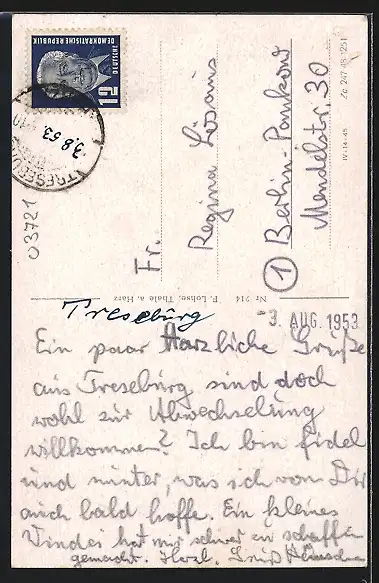 DEUTSCHE
DEMOKRATISCHE REPUBLIK
12
TRESEBURG
3.8.53
03721
Fr.
Regina
① Berlin-Pankow
Mendelstr. 30
IV-14-45
Nr. 214 F. Lohse, Thale a. Harz
Treseburg
-3. AUG. 1953
Ein paar Harzliche Grüße
aus Treseburg sind doch
wohl zur Abwechselung
willkommen? Ich bin fidel
und munter, was ich von Dir
auch bald hoffe. Ein kleines
hat mir schwer zu schaffen
gemacht. Herzl. Gruß